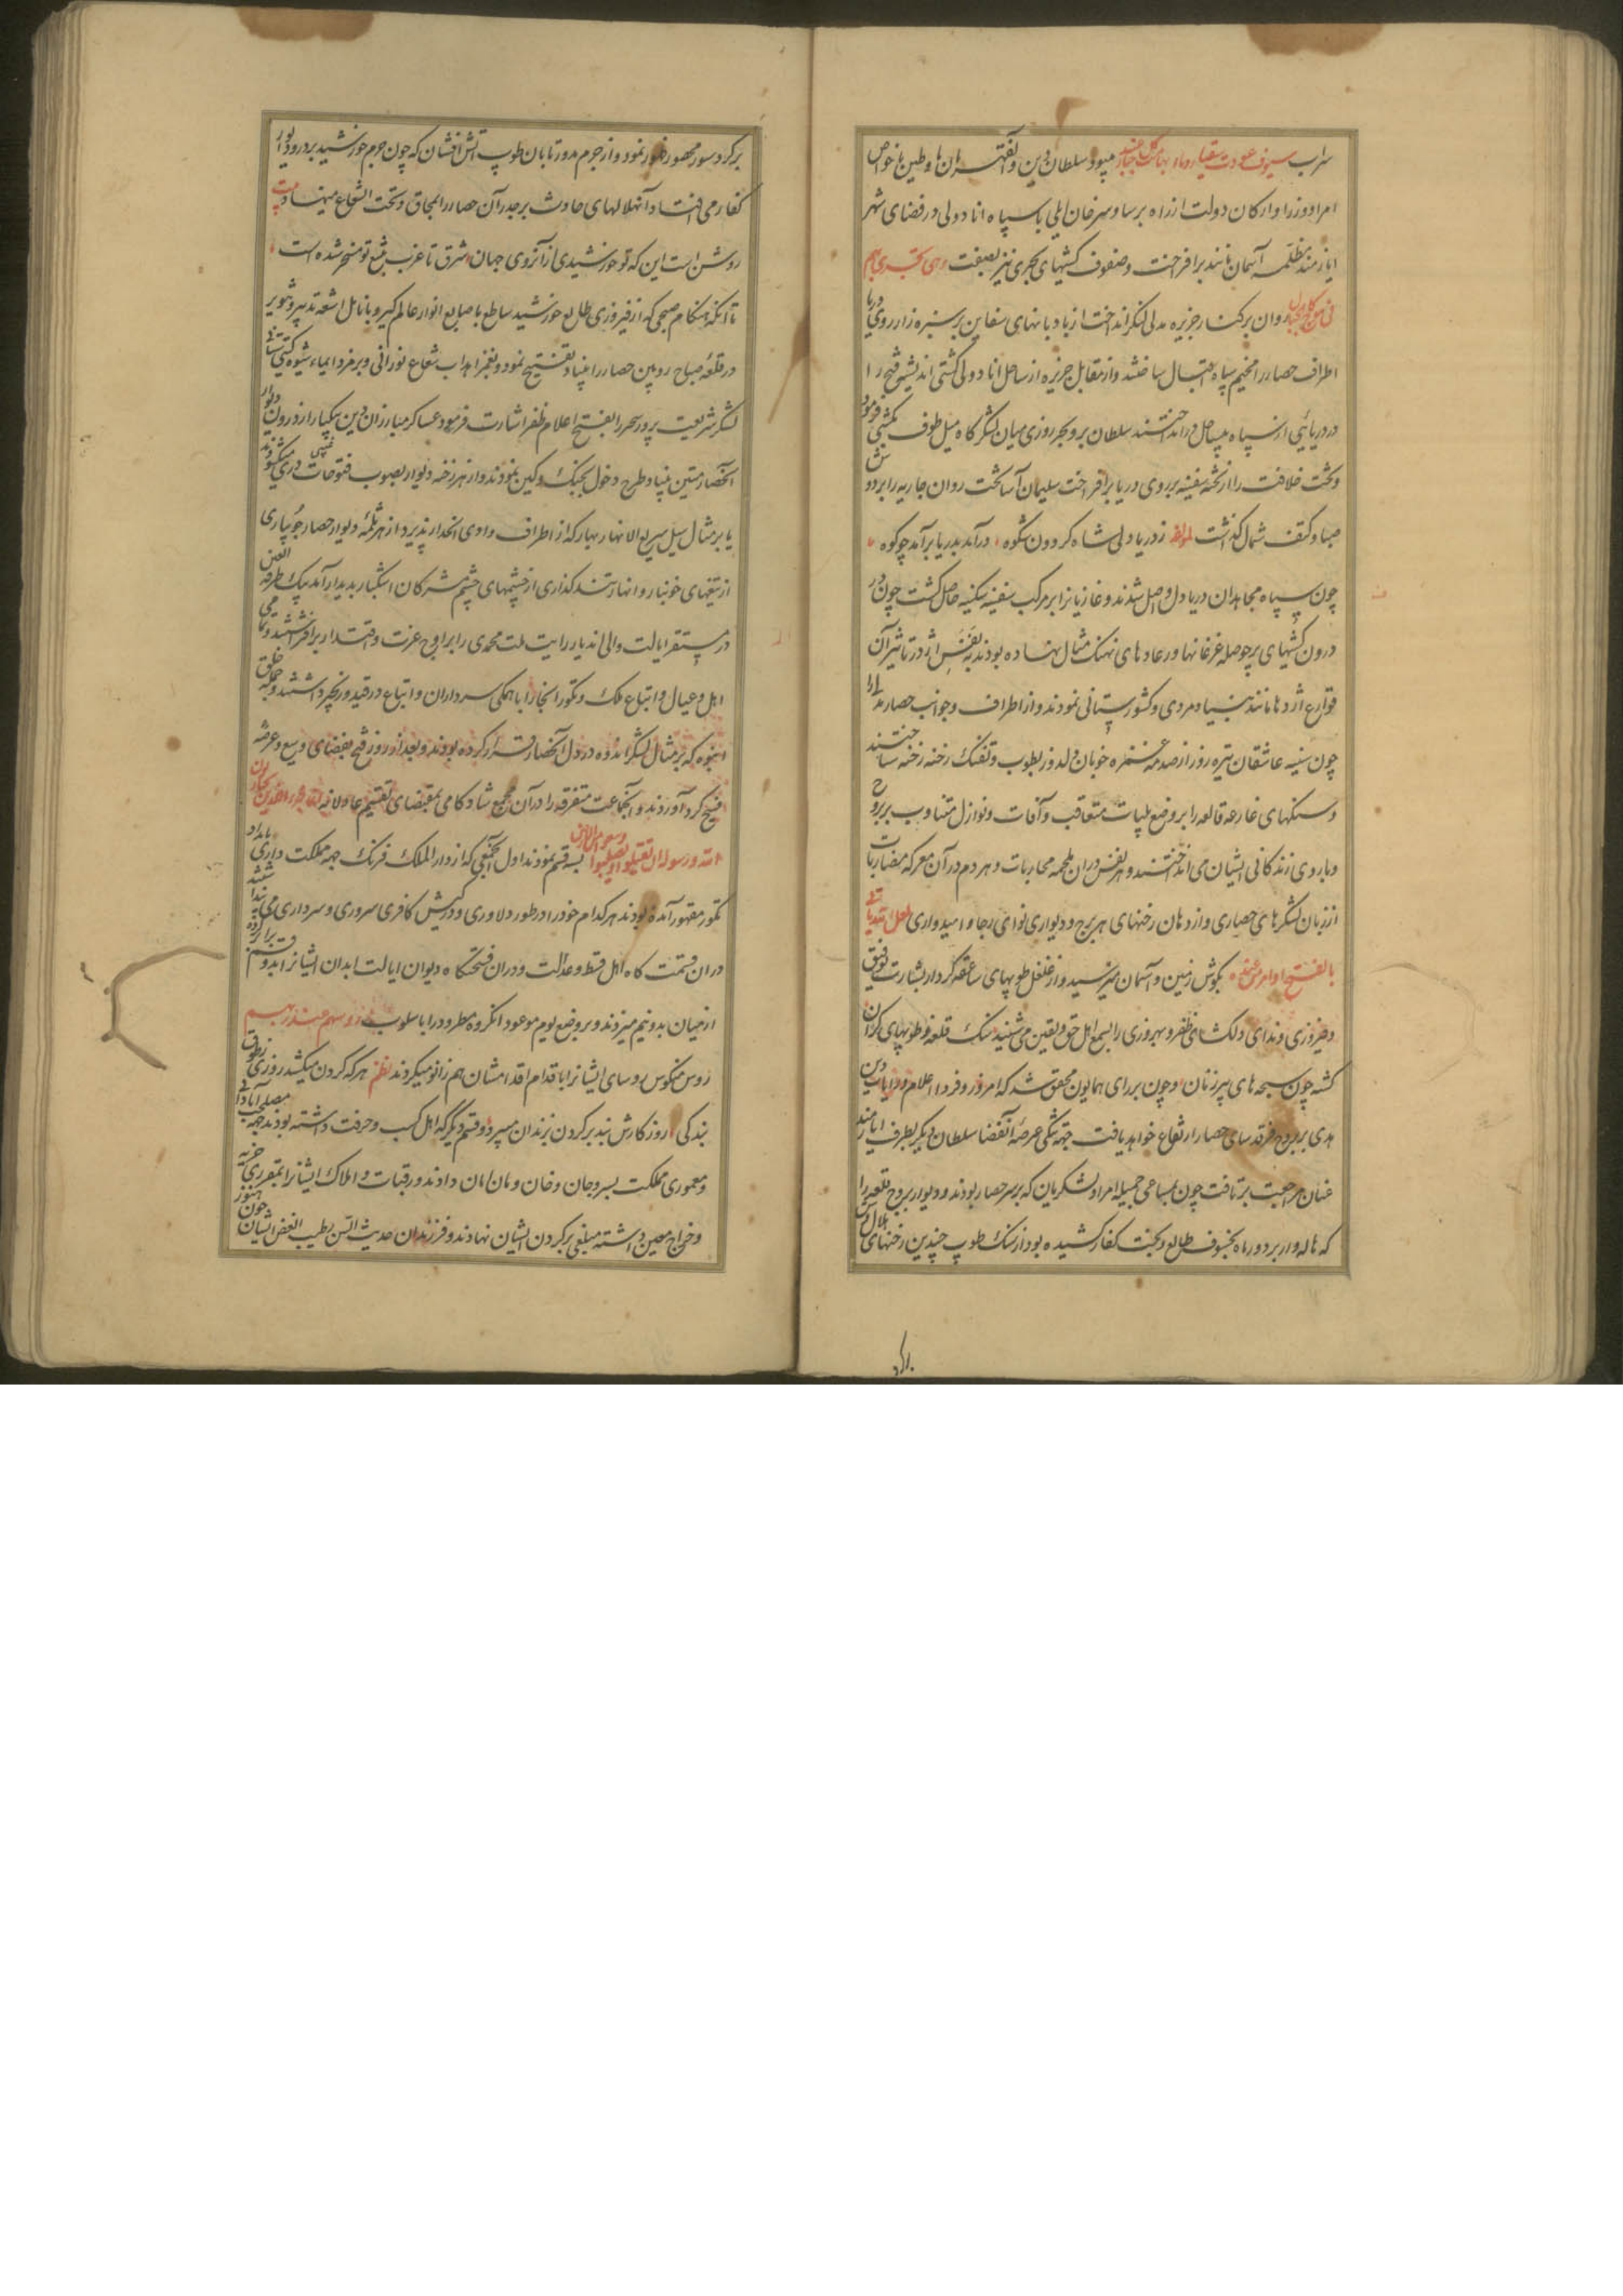 سراب سیوف عودت سقیا و دماء بهامات جبابره میبود سلطان دین و القهرمان ماء و طین با خواص
امرا و وزرا و ارکان دولت از راه برسا و سرخان ایلی با سپاه اناد ولی در فضای شهر
ایازمند مظله آسمان مانند برافراخت و صفوف کشتیهای بحری نیز بصفت وهی تجری بهم
فی موج کالجبال روان بر کنار جزیره مدللی لنکر انداخت از بادبانهای سفاین بر سبزه زار روی دریا
اطراف حصار را مخیم سپاه اقبال ساختند و از مقابل جزیره از ساحل اناد ولی کشتی اندیشه فتح را
در دریایی از سپاه بیساحل در انداختند سلطان بر و بحر روزی میان لشکرگاه میل طوف کشتی فرمود
و تخت خلافت را از تخته سفینه بروی دریا برافراخت سلیمان آسا تخت روان جاریه را بر دوش
صبا و کتف شمال گذاشت لمؤلفه ز دریا دلی شاه گردون شکوه درآمد بدریا برآمد چو کوه
چون سپاه مجاهدان دریا دل واصل شدند و غازیان را بر مرکب سفینه سکینه حاصل گشت چون در
درون کشتیهای پرحوصله غرغانها و رعادهای نهنک مثال نهاده بودند بنفس اژدر تاثیر آن
قوارع اژدها مانند بنیاد مردی و کشورستانی نمودند و از اطراف و جوانب حصار مدللی را
چون سینه عاشقان تیره روز از صدمه غمزه خوبان دلدوز بطوب و تفنک رخنه رخنه ساختند
و سنکهای غارعه قالعه را بر وضع بلیات متعاقب و آفات و نوازل متناوب بر بروج
و باروی زندگانی ایشان می انداختند و هر نفس در ان ملحمه محاربات و هر دم در آن معرکه مضاربات
از زبان لشکرهای حصاری و از دهان رخنهای هر برج و دیواری نوای رجا و امیدواری لعل الله یاتی
بالفتح او امر من عنده بگوش زمین و آسمان میرسید و از غلغل طوبهای صاعقه کردار بشارت توفیق
و فیروزی و ندای دلکشای ظفر و بهروزی را بسمع اهل حق و یقین می شنید سنک قلعه و طوبهای گران
گشته چون سبحه های پیرزنان و چون بر رای همایون محقق شد که امروز و فردا اعلام و رایات دین
هدی بر بروج فرقد سای حصار ارتفاع خواهد یافت جهة تنگی عرصه آنفضا سلطان دیگر بطرف ایازمند
عنان مراجعت برتافت چون بمساعی جمیله امرا و لشکریان که بر سر حصار بودند و دیوار بروج قلعه را
که هاله وار بر دور ماه بخسوف طالع و بخت کفار کشیده بود از سنک طوب چندین رخنهای هلال وش
بر گرد سور محصور ظهور نمود و از جرم مدور تابان طوب آتش افشان که چون جرم خورشید بر در و دیوار
کفار می افتاد آنهلالهای حادث بر جدر آن حصار را بمحاق و تحت الشعاع مینهاد بیت
روشن است این که تو خورشیدی از آنروی جهان شرق تا غرب بتیغ تو مسخر شده است
تا آنکه هنکام صبحی که از فیروزی طالع خورشید ساطع باصابع انوار عالم گیر و بانامل اشعه تدبیر و تنویر
در قلعه صباح رویین حصار را بنیاد تفتیح نمود و بغمز اهداب شعاع نورانی و برمز و ایماء شیوه گیتی ستانی
لشکر شریعت پرور سحر را بفتح اعلام ظفر اشارت فرمود عساکر مبارزان دین بیکبار از درون دیوار
آنحصار متین بنیاد طرح دخول بجنک و کین نمودند و از هر رخنه دیوار بصوب فتوحات غیبی دری میکشودند
یا بر مثال سیل سریع الانهار بهار که از اطراف وادی انحدار پذیرد از هر ثلمه دیوار حصار جویباری
از تیغهای خونبار و انهار تند گذاری از چشمهای چشم مشرکان اشکبار بدیدار آمد بیک طرفه العین
در مستقر ایالت والی ندیار رایت ملت محمدی را بر اوج عزت و اقتدار برافراشتند و تمامی
اهل و عیال و اتباع ملک و تکور آنجا را با همگی سرداران و اتباع در قید و زنجیر داشتند و جماعت خلق
انبوه که بر مثال لشکر اندوه در دل آنحصار قرار کرده بودند و بعد از روز فتح بفضای وسیع و عرصه
فسیح گرد آوردند و آنجماعت متفرقه را در آن مجمع شاد کامی بمقتضای تقسیم عادلانه انما جزاء الذین یحاربون
الله و رسوله ان یقتلوا او یصلبوا و یسعون فی الارض بسه قسم نمودند اول آنجمعی که از دار الملک فرنک جهة مملکت داری بامداد
تکور مقهور آمده بودند هر کدام خود را در طور دلاوری و در کیش کافری سروری و سرداری می پنداشتند
در ان قسمت گاه اهل قسط و عدالت و در ان فتحگاه دیوان ایالت ابدان ایشانرا بدو قسم برابر کرده
از میان بدو نیم میزدند و بر وضع یوم موعود انگروه مطرود را باسلوب رؤسهم عند ربهم
روس منکوس روسای ایشانرا باقدام اقدامشان هم زانو میکردند نظم هر که گردن میکشد روزی ز طوق
بندگی روزگارش بند بر گردن بزندان میبرد و قسم دیگر که اهل کسب و حرفت داشته بودند جهة مصلحت آبادانی
و معموری مملکت بسر و جان و خان و مان امان دادند و رقبات و املاک ایشانرا بتقریر جزیه
و خراج معین داشته مبلغی بر گردن ایشان نهادند و فرزندان حدیث السن بطیب الغض ایشان چون هنوز